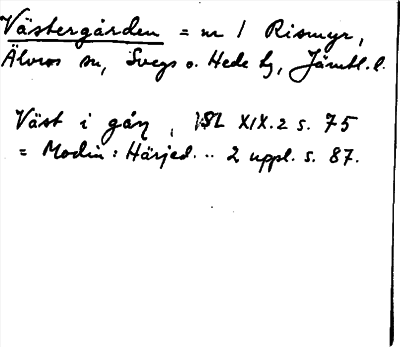 Västergården = nr 1 Rismyr,
Älvros sn, Svegs o. Hede tg, Jämtl. l.
Väst i gåɳ, ISL XIX.2 s. 75
= Modin: Härjed... 2 uppl. s. 87.